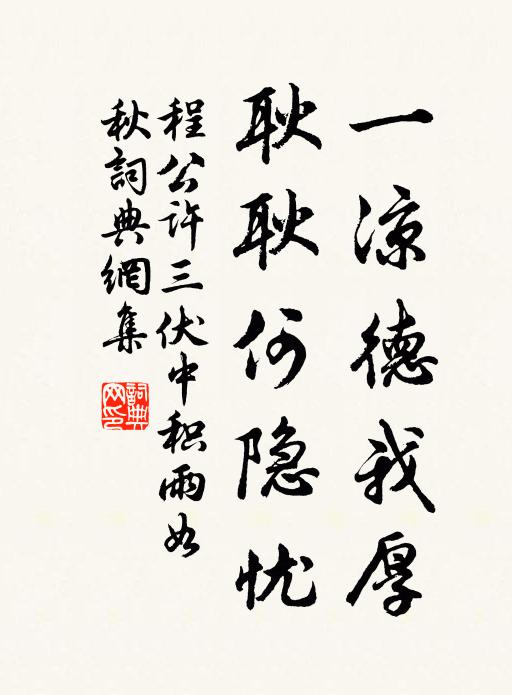 一凉德我厚
耿耿何隐忧
程公许三伏中积雨如
秋詞典網集
詞典網印